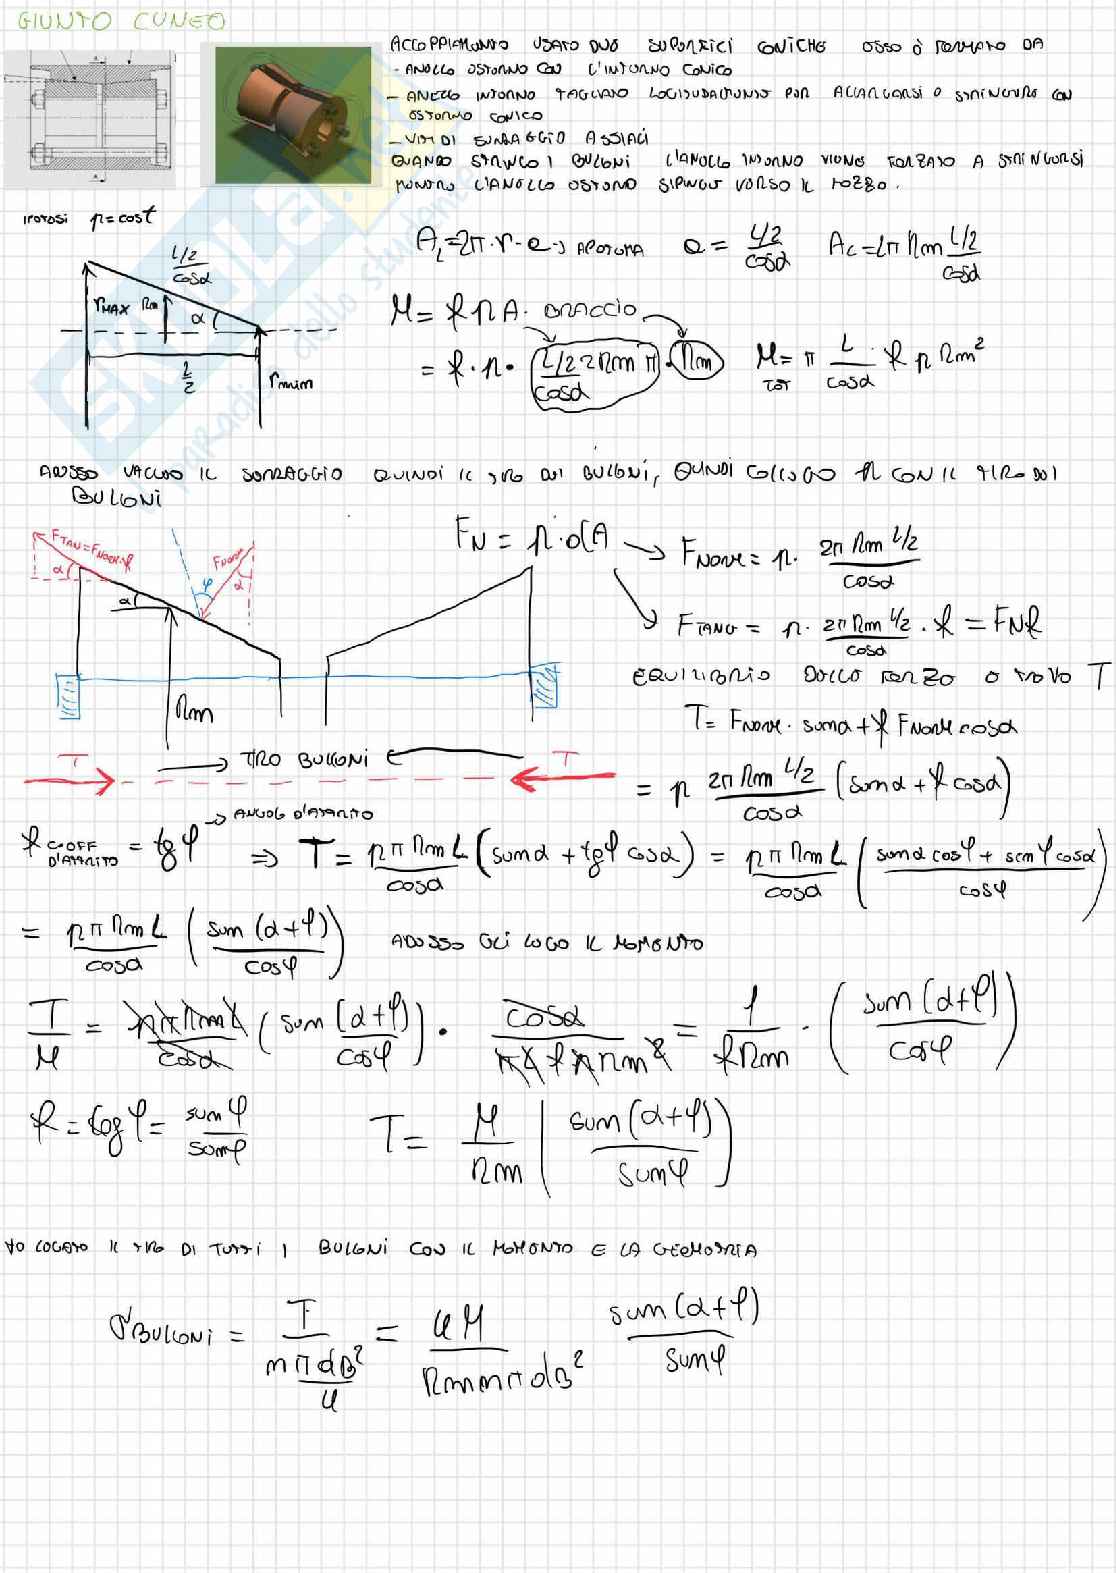 GIUNTO CUNEO
ACCOPPIAMENTO USATO DUE SUPERFICI CONICHE ESSO È FORMATO DA
- ANELLO ESTERNO CON L'INTERNO CONICO
- ANELLO INTERNO TAGLIATO LOGITUDALMENTE PER ALLARGARSI O STRINGERE CON
ESTERNO CONICO
- VITI DI SERRAGGIO ASSIALI
QUANDO STRINGO I BULLONI L'ANELLO INTERNO VIENE FORZATO A STRINGERSI
MENTRE L'ANELLO ESTERNO SPINGE VERSO IL MOZZO.
IPOTESI p = cost
L/2 / cosα
rMAX Rm α
L/2
rmin
AL = 2π · r · a → APOTEMA a = L/2 / cosα AL = 2π Rm L/2 / cosα
M = f p A · BRACCIO
= f · p · (L/2 2Rm π / cosα) · (Rm) MTOT = π L / cosα · f p Rm²
ADESSO VALUTO IL SERRAGGIO QUINDI IL TIRO DEI BULLONI, QUINDI COLLEGO p CON IL TIRO DEI
BULLONI
FTAN = FNORM · f
FNORM
α α φ α
Rm
FN = p · dA → FNORM = p · 2π Rm L/2 / cosα
FTANG = p · 2π Rm L/2 / cosα · f = FN f
EQUILIBRIO DELLE FORZE E TROVO T
T = FNORM · senα + f FNORM cosα
T → TIRO BULLONI ← T
= p 2π Rm L/2 / cosα (senα + f cosα)
→ ANGOLO D'ATTRITO
f COEFF D'ATTRITO = tg φ ⇒ T = p π Rm L / cosα (senα + tgφ cosα) = p π Rm L / cosα (senα cosφ + senφ cosα / cosφ)
= p π Rm L / cosα (sen(α+φ) / cosφ) ADESSO GLI LEGO IL MOMENTO
T / M = p π Rm L / cosα (sen(α+φ) / cosφ) · cosα / π L f p Rm² = 1 / f Rm · (sen(α+φ) / cosφ)
f = tog φ = senφ / senφ T = M / Rm (sen(α+φ) / senφ)
HO LEGATO IL TIRO DI TUTTI I BULLONI CON IL MOMENTO E LA GEOMETRIA
σBULLONI = T / (n π dB² / 4) = 4M / Rm n π dB² sen(α+φ) / senφ